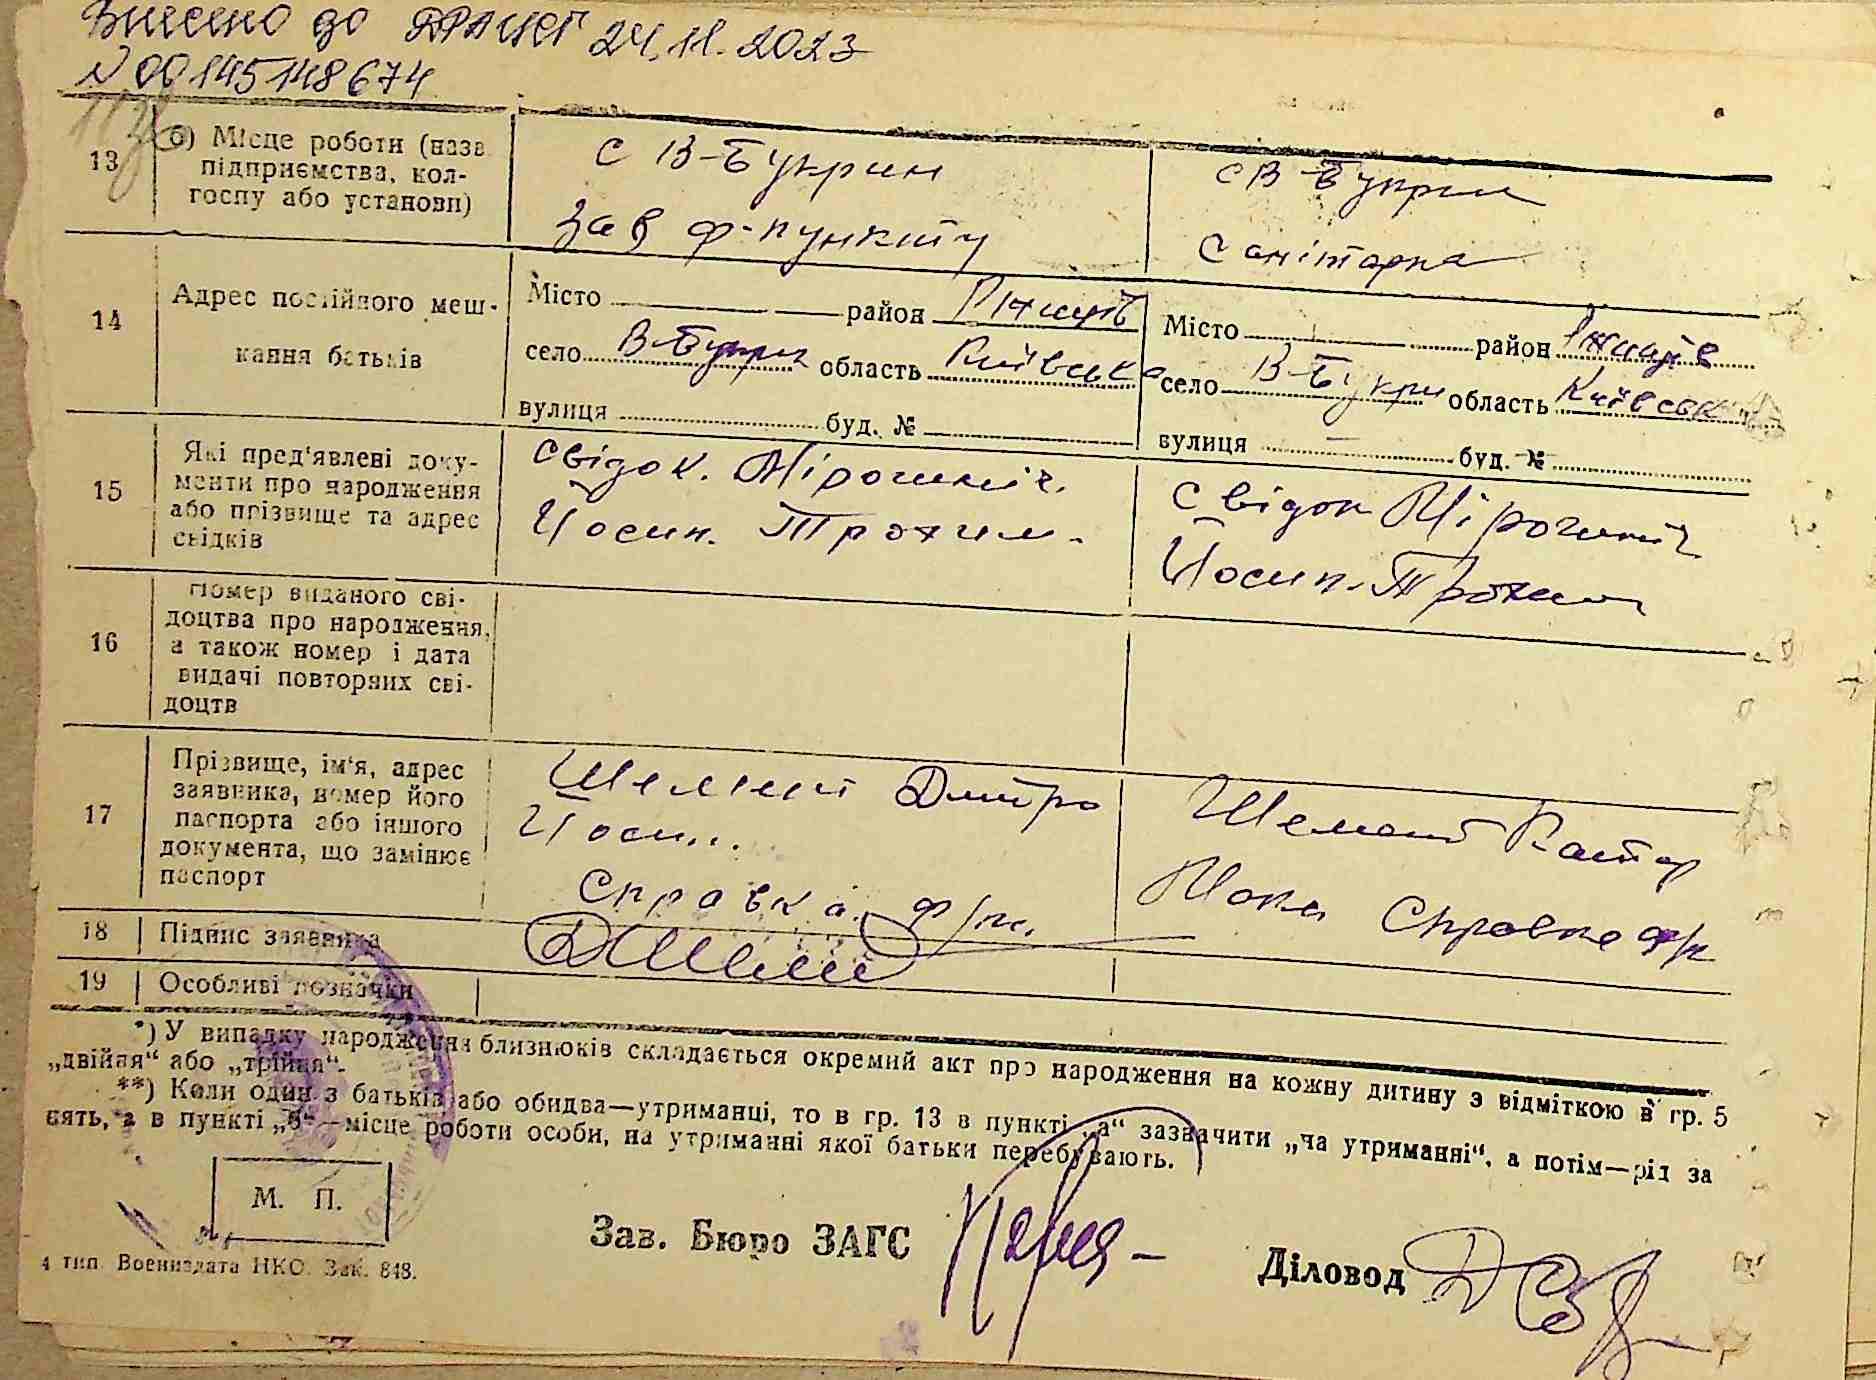 Внесено до ДРАЦСГ 24.11.2023
N 00145148674
13 б) Місце роботи (назв підприємства, колгоспу або установи)
с В-Букрин
Зав ф-пункту
с В-Букрин
Санітарка
14 Адрес постійного мешкання батьків
Місто район Ржищів
село В-Букрин область Київська
вулиця буд. №
Місто район Ржищів
село В-Букрин область Київськ
вулиця буд. №
15 Які пред'явлені документи про народження або прізвище та адрес свідків
Свідок. Мірошнич.
Йосип. Трохим.
Свідок Мірошнич
Йосип. Трохим
16 Номер виданого свідоцтва про народження, а також номер і дата видачі повторних свідоцтв
17 Прізвище, ім'я, адрес заявника, номер його паспорта або іншого документа, що замінює паспорт
Шелест Дмитро
Йоси...
Справка. ф/п.
Шелест
Справка ф/п
18 Підпис заявника
19 Особливі позначки
*) У випадку народження близнюків складається окремий акт про народження на кожну дитину з відміткою в гр. 5
„двійня“ або „трійця“.
**) Коли один з батьків або обидва—утриманці, то в гр. 13 в пункті „а“ зазначити „на утриманні“, а потім—рід за
нять, а в пункті „б“—місце роботи особи, на утриманні якої батьки перебувають.
М. П.
Зав. Бюро ЗАГС
Діловод
4 тип. Воениздата НКО. Зак. 848.